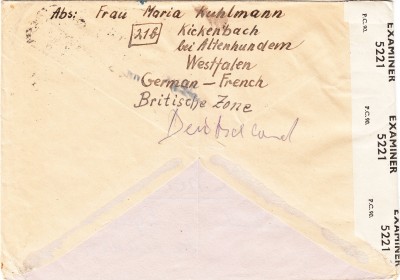 Abs: Frau Maria Kuhlmann
21b Kickenbach
bei Altenhundem
Westfalen
German – French
Britische Zone
Deutschland
P.C. 90.
EXAMINER
5221
P.C. 90.
EXAMINER
5221
P.C. 90.
EXAMINER
5221